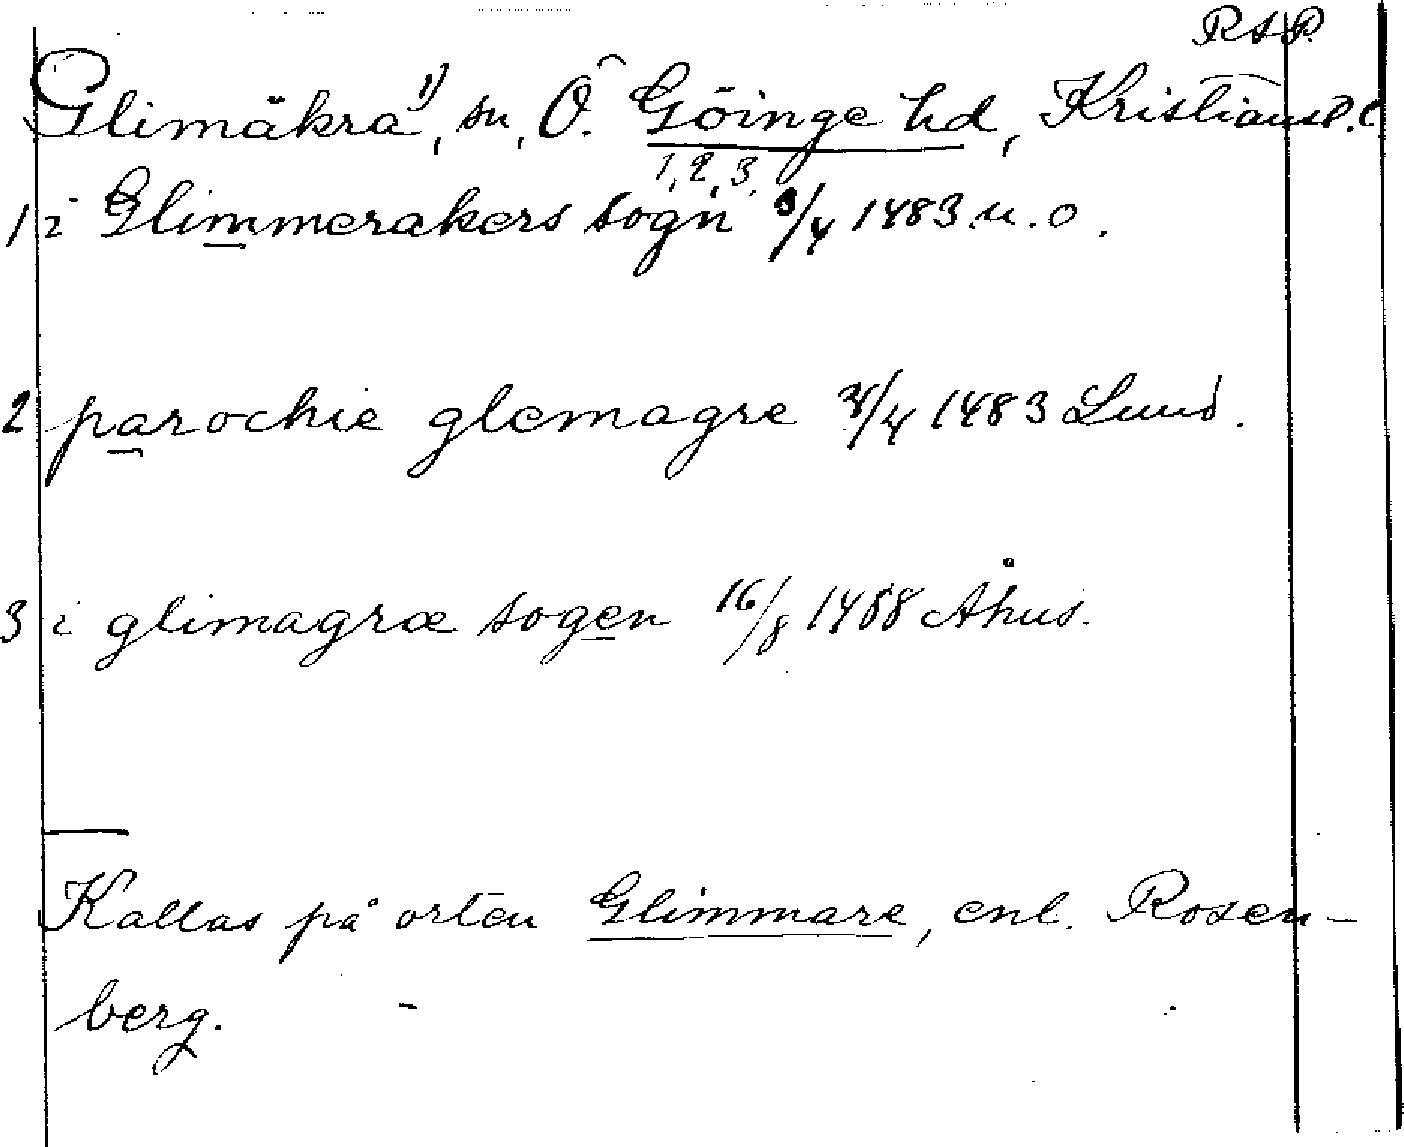 RAP.
Glimåkra¹⁾, sn, Ö. Göinge hd, Kristianst. l
1, 2, 3,
1 i Glimmerakers sogn 3/4 1483 u. o.
2 parochie glemagre 4/4 1483 Lund.
3 i glimagræ sogen 16/8 1488 Åhus.
Kallas på orten Glimmare, enl. Rosen-
berg.